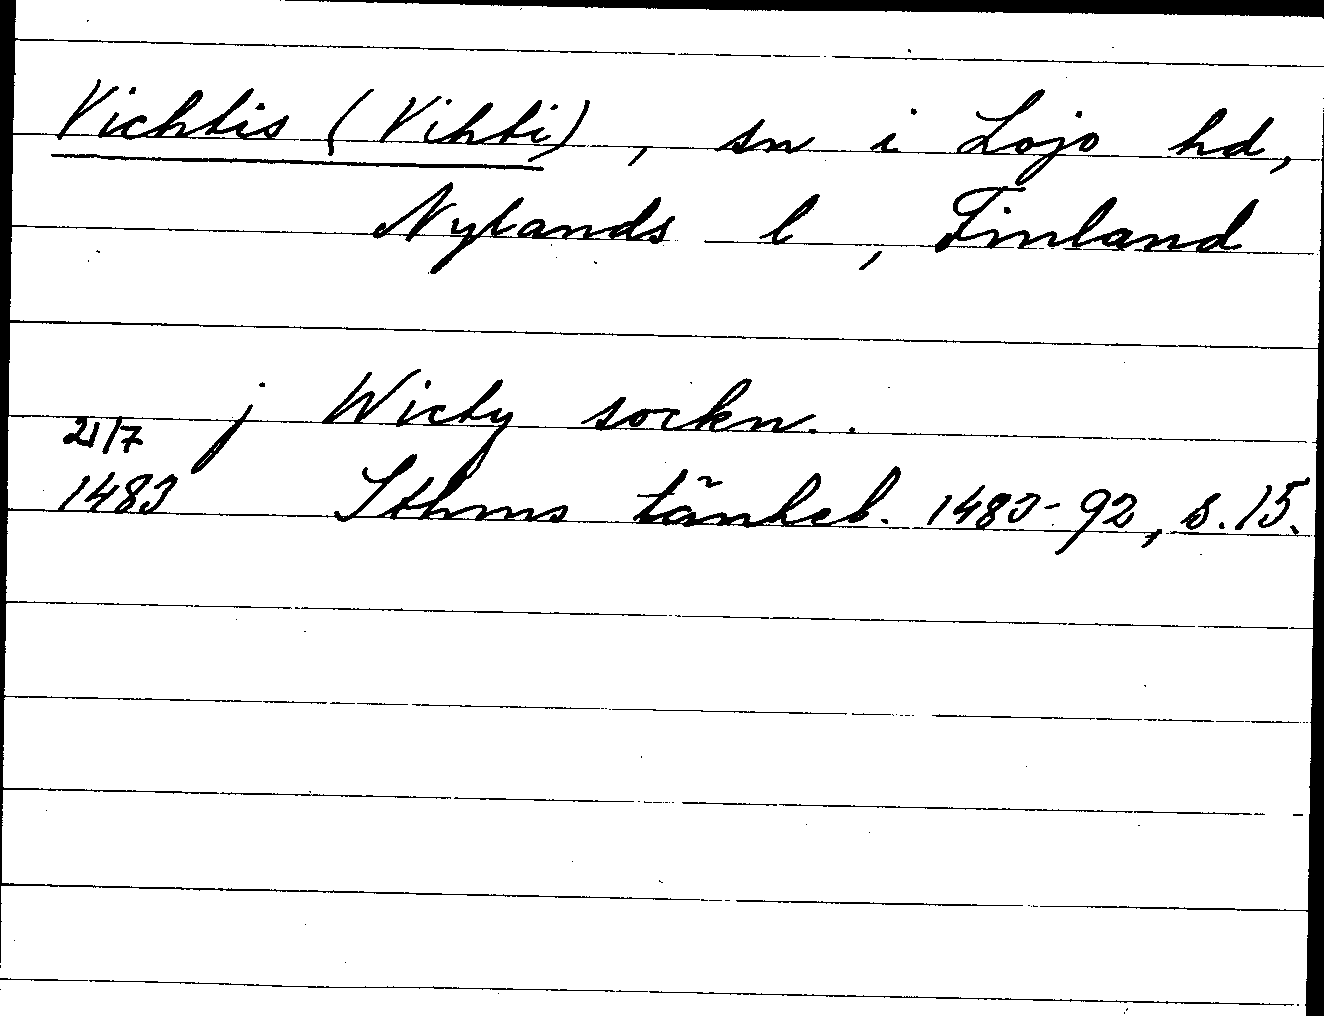 Vichtis (Vihti), sn i Lojo hd,
Nylands l, Finland
21/7 j Wicty sockn..
1483 Sthms tänkeb. 1483-92, s. 15.